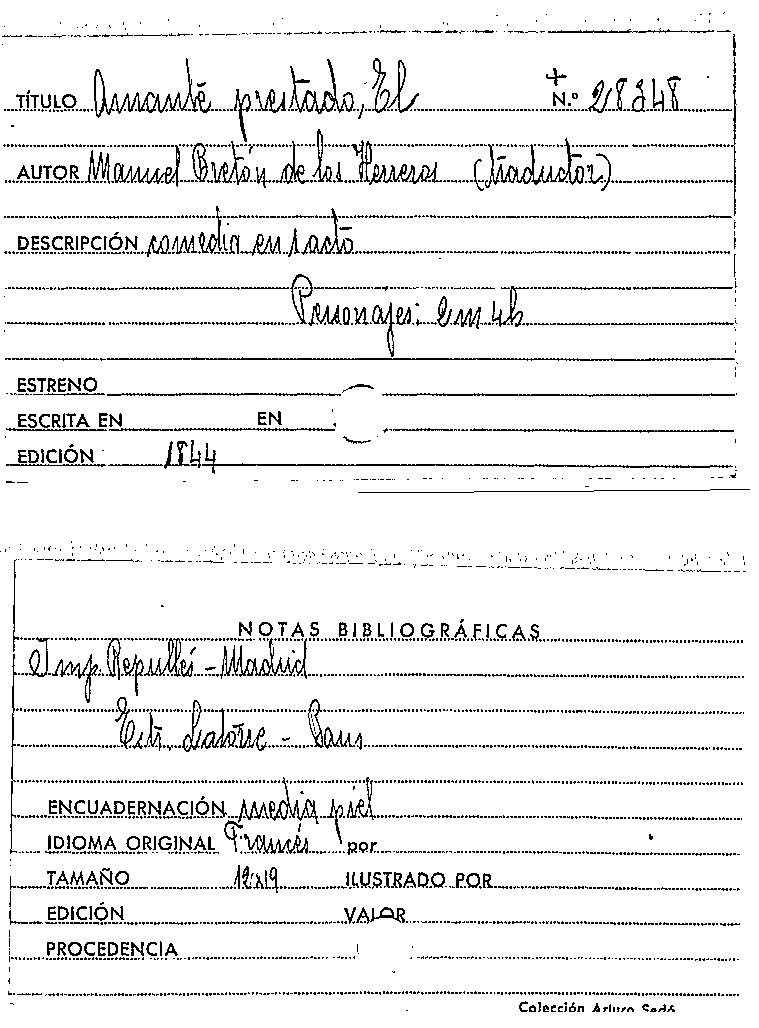 TÍTULO Amante prestado, El + N.º 28348
AUTOR Manuel Bretón de los Herreros (traductor)
DESCRIPCIÓN comedia en 1 acto
Personajes: 2m 4h
ESTRENO
ESCRITA EN EN
EDICIÓN 1844
NOTAS BIBLIOGRÁFICAS
Imp. Repullés - Madrid
Edit.
ENCUADERNACIÓN media piel
IDIOMA ORIGINAL Francés por
TAMAÑO 12x19 ILUSTRADO POR
EDICIÓN VALOR
PROCEDENCIA
Colección Arturo Sedó